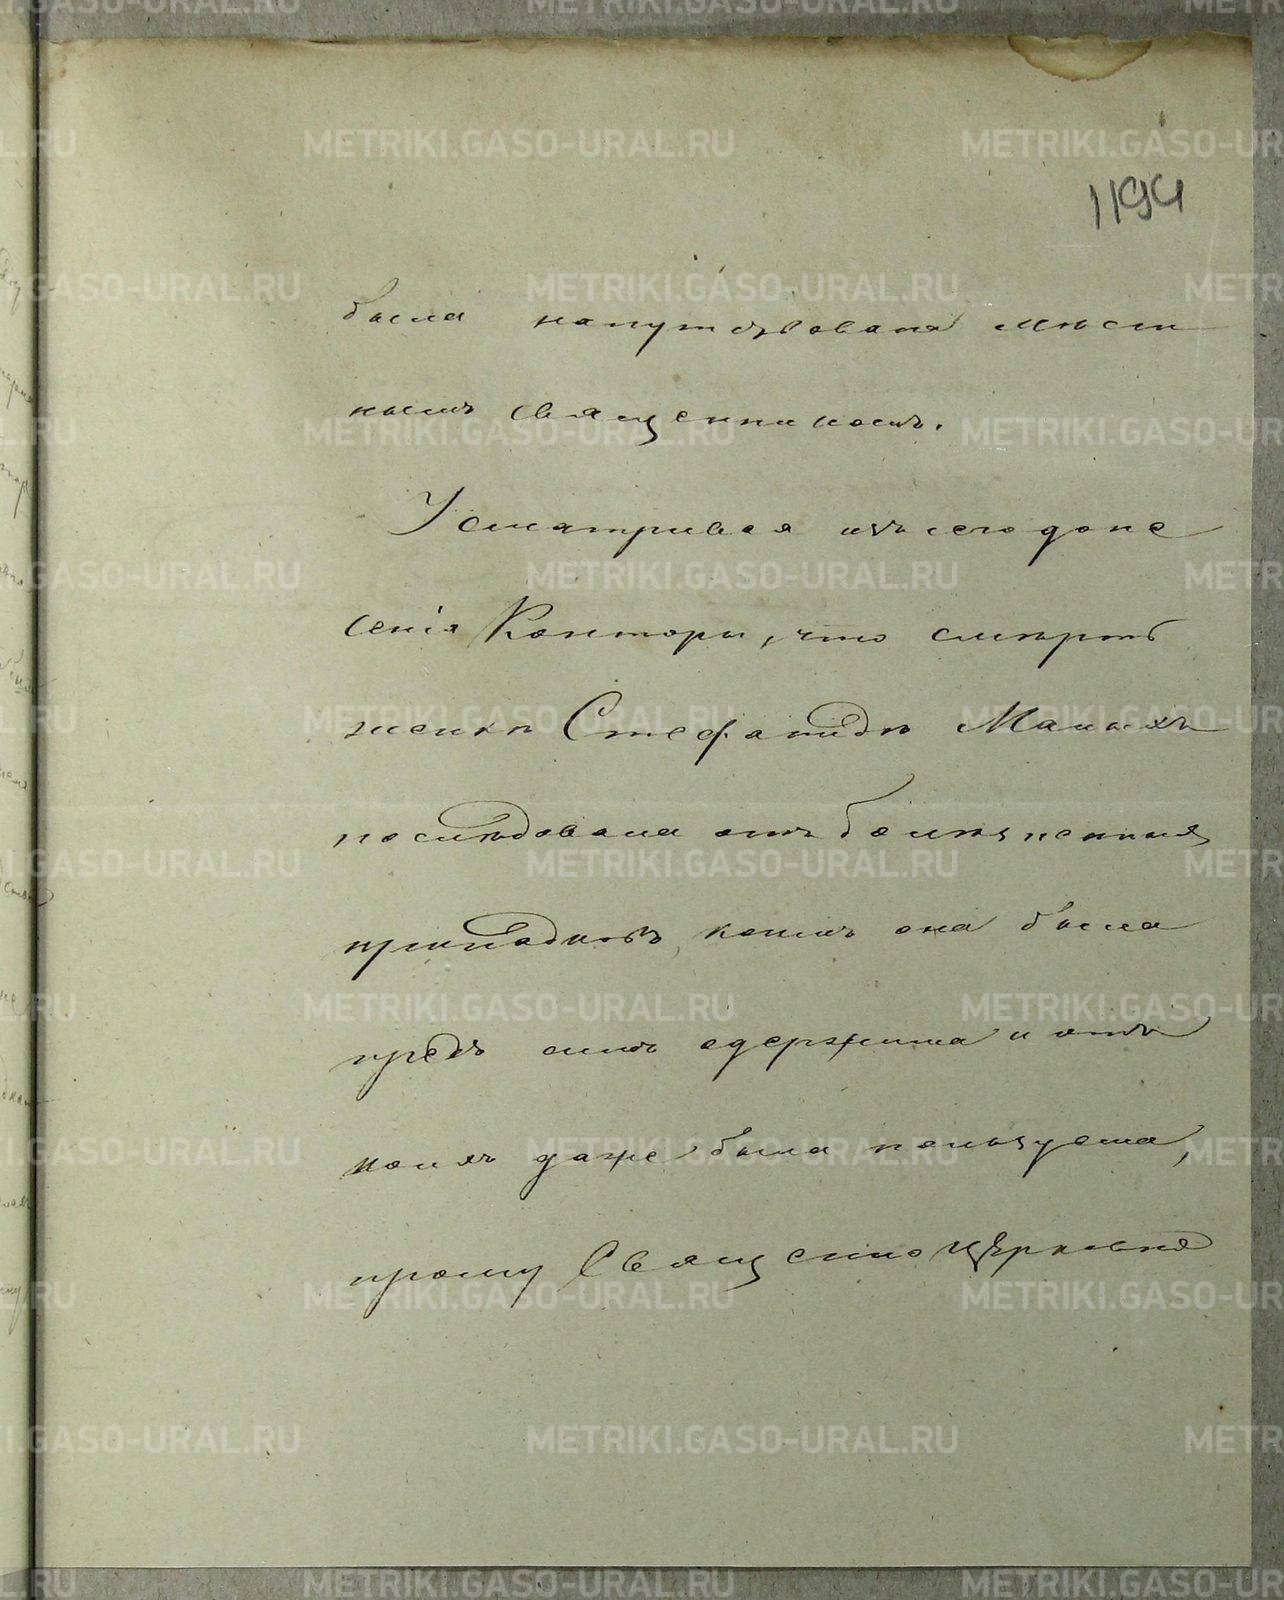 1194
была напутствована мѣст
нымъ священникомъ.
Усматривая изъ сего доне
сенія Конторы, что смерть
женкѣ Стефанидѣ Малыхъ
последовала отъ болѣзненныхъ
припадковъ, коими она была
предъ симъ одержима и отъ
коихъ даже была пользуема,
прошу Священноцерковно
METRIKI.GASO-URAL.RU